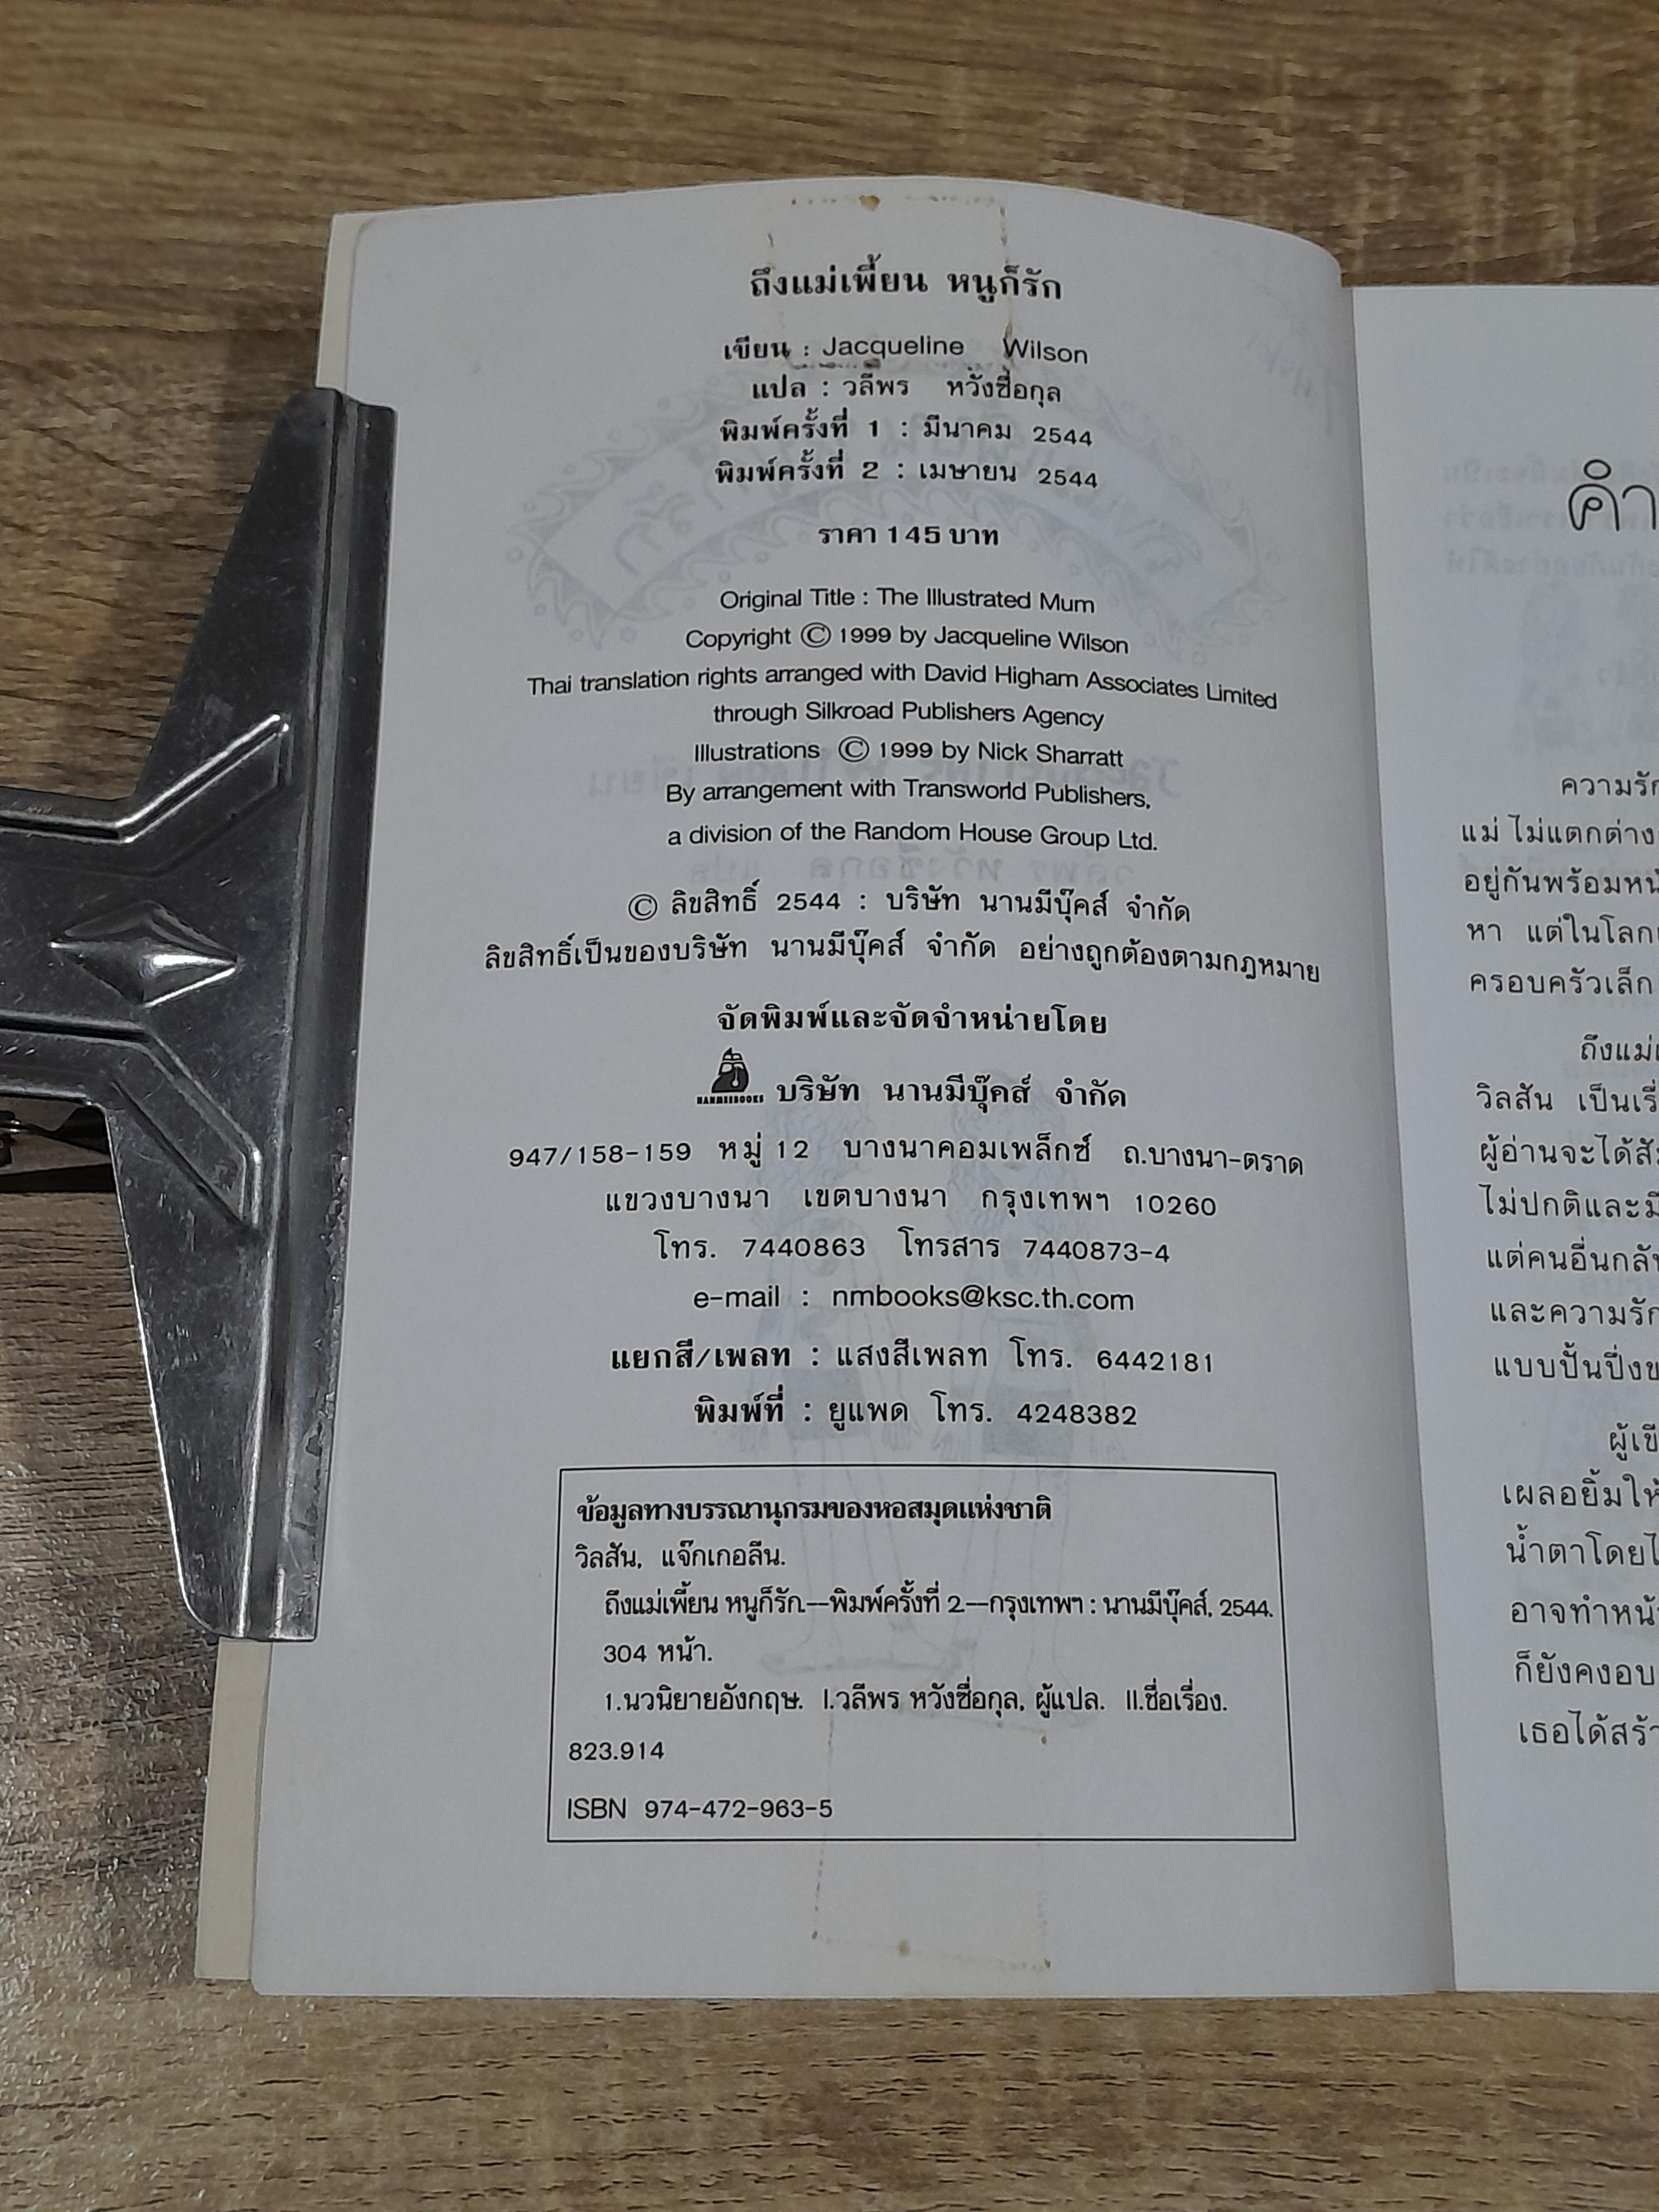 ถึงแม่เพี้ยน หนูก็รัก
เขียน : Jacqueline Wilson
แปล : วลีพร หวังซื่อกุล
พิมพ์ครั้งที่ 1 : มีนาคม 2544
พิมพ์ครั้งที่ 2 : เมษายน 2544
ราคา 145 บาท
Original Title : The Illustrated Mum
Copyright © 1999 by Jacqueline Wilson
Thai translation rights arranged with David Higham Associates Limited
through Silkroad Publishers Agency
Illustrations © 1999 by Nick Sharratt
By arrangement with Transworld Publishers,
a division of the Random House Group Ltd.
© ลิขสิทธิ์ 2544 : บริษัท นานมีบุ๊คส์ จำกัด
ลิขสิทธิ์เป็นของบริษัท นานมีบุ๊คส์ จำกัด อย่างถูกต้องตามกฎหมาย
จัดพิมพ์และจัดจำหน่ายโดย
NANMEEBOOKS บริษัท นานมีบุ๊คส์ จำกัด
947/158-159 หมู่ 12 บางนาคอมเพล็กซ์ ถ.บางนา-ตราด
แขวงบางนา เขตบางนา กรุงเทพฯ 10260
โทร. 7440863 โทรสาร 7440873-4
e-mail : nmbooks@ksc.th.com
แยกสี/เพลท : แสงสีเพลท โทร. 6442181
พิมพ์ที่ : ยูแพด โทร. 4248382
ข้อมูลทางบรรณานุกรมของหอสมุดแห่งชาติ
วิลสัน, แจ๊กเกอลีน.
ถึงแม่เพี้ยน หนูก็รัก.--พิมพ์ครั้งที่ 2.--กรุงเทพฯ : นานมีบุ๊คส์, 2544.
304 หน้า.
1.นวนิยายอังกฤษ. I.วลีพร หวังซื่อกุล, ผู้แปล. II.ชื่อเรื่อง.
823.914
ISBN 974-472-963-5
คำ
ความรัก
แม่ ไม่แตกต่าง
อยู่กันพร้อมหน้
หา แต่ในโลก
ครอบครัวเล็ก
ถึงแม่
วิลสัน เป็นเรื่
ผู้อ่านจะได้สั
ไม่ปกติและมี
แต่คนอื่นกลั
และความรัก
แบบปั้นปึ่ง
ผู้เขี
เผลอยิ้มให้
น้ำตาโดยไ
อาจทำหน้
ก็ยังคงอบ
เธอได้สร้า